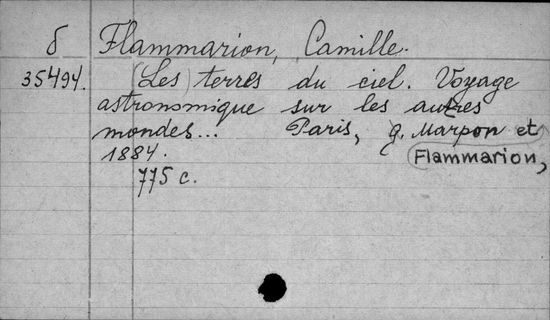 б Flammarion, Camille.
35494. (Les) terres du ciel. Voyage
astronomique sur les autres
mondes... Paris, g. Marpon et
1884. Flammarion,
775 c.